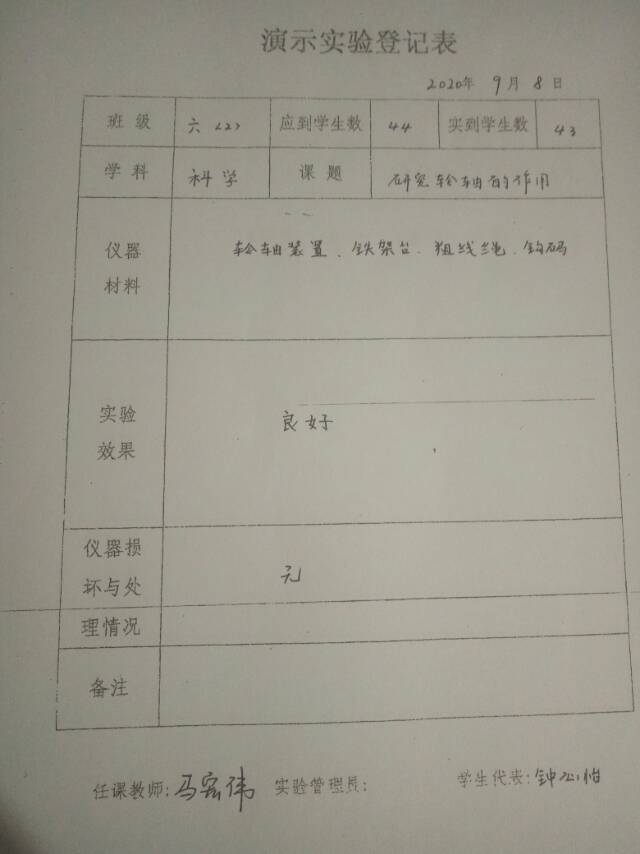 演示实验登记表
2020年 9月 8日
班级 六〈2〉 应到学生数 44 实到学生数 43
学科 科学 课题 研究轮轴的作用
仪器材料 轮轴装置、铁架台、粗线绳、钩码
实验效果 良好
仪器损坏与处理情况 无
备注
任课教师:马宏伟 实验管理员: 学生代表:钟心怡